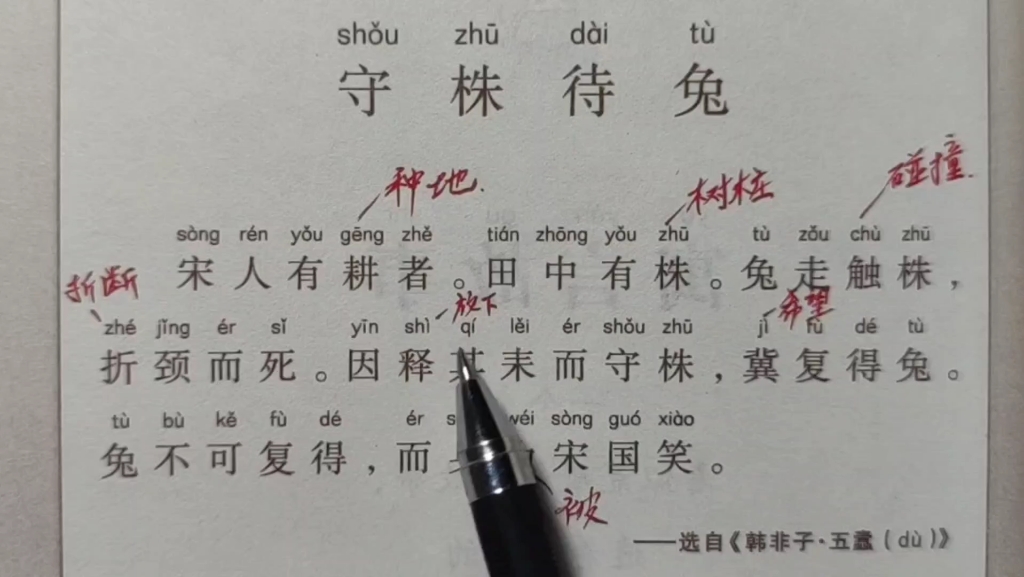 shǒu zhū dài tù
守株待兔
种地.
树桩
碰撞.
sòng rén yǒu gēng zhě tián zhōng yǒu zhū tù zǒu chù zhū
宋人有耕者。田中有株。兔走触株，
折断
放下
希望
zhé jǐng ér sǐ yīn shì qí lěi ér shǒu zhū jì fù dé tù
折颈而死。因释其耒而守株，冀复得兔。
tù bù kě fù dé ér wéi sòng guó xiào
兔不可复得，而宋国笑。
被
——选自《韩非子·五蠹（dù）》